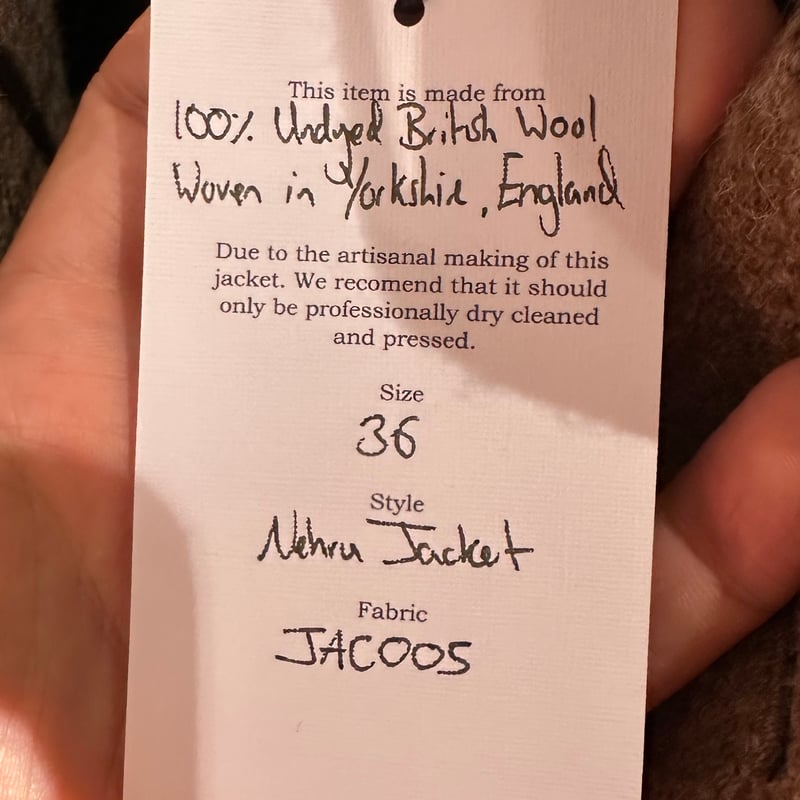 This item is made from
100% Undyed British Wool
Woven in Yorkshire, England
Due to the artisanal making of this
jacket. We recomend that it should
only be professionally dry cleaned
and pressed.
Size
36
Style
Nehru Jacket
Fabric
JAC005